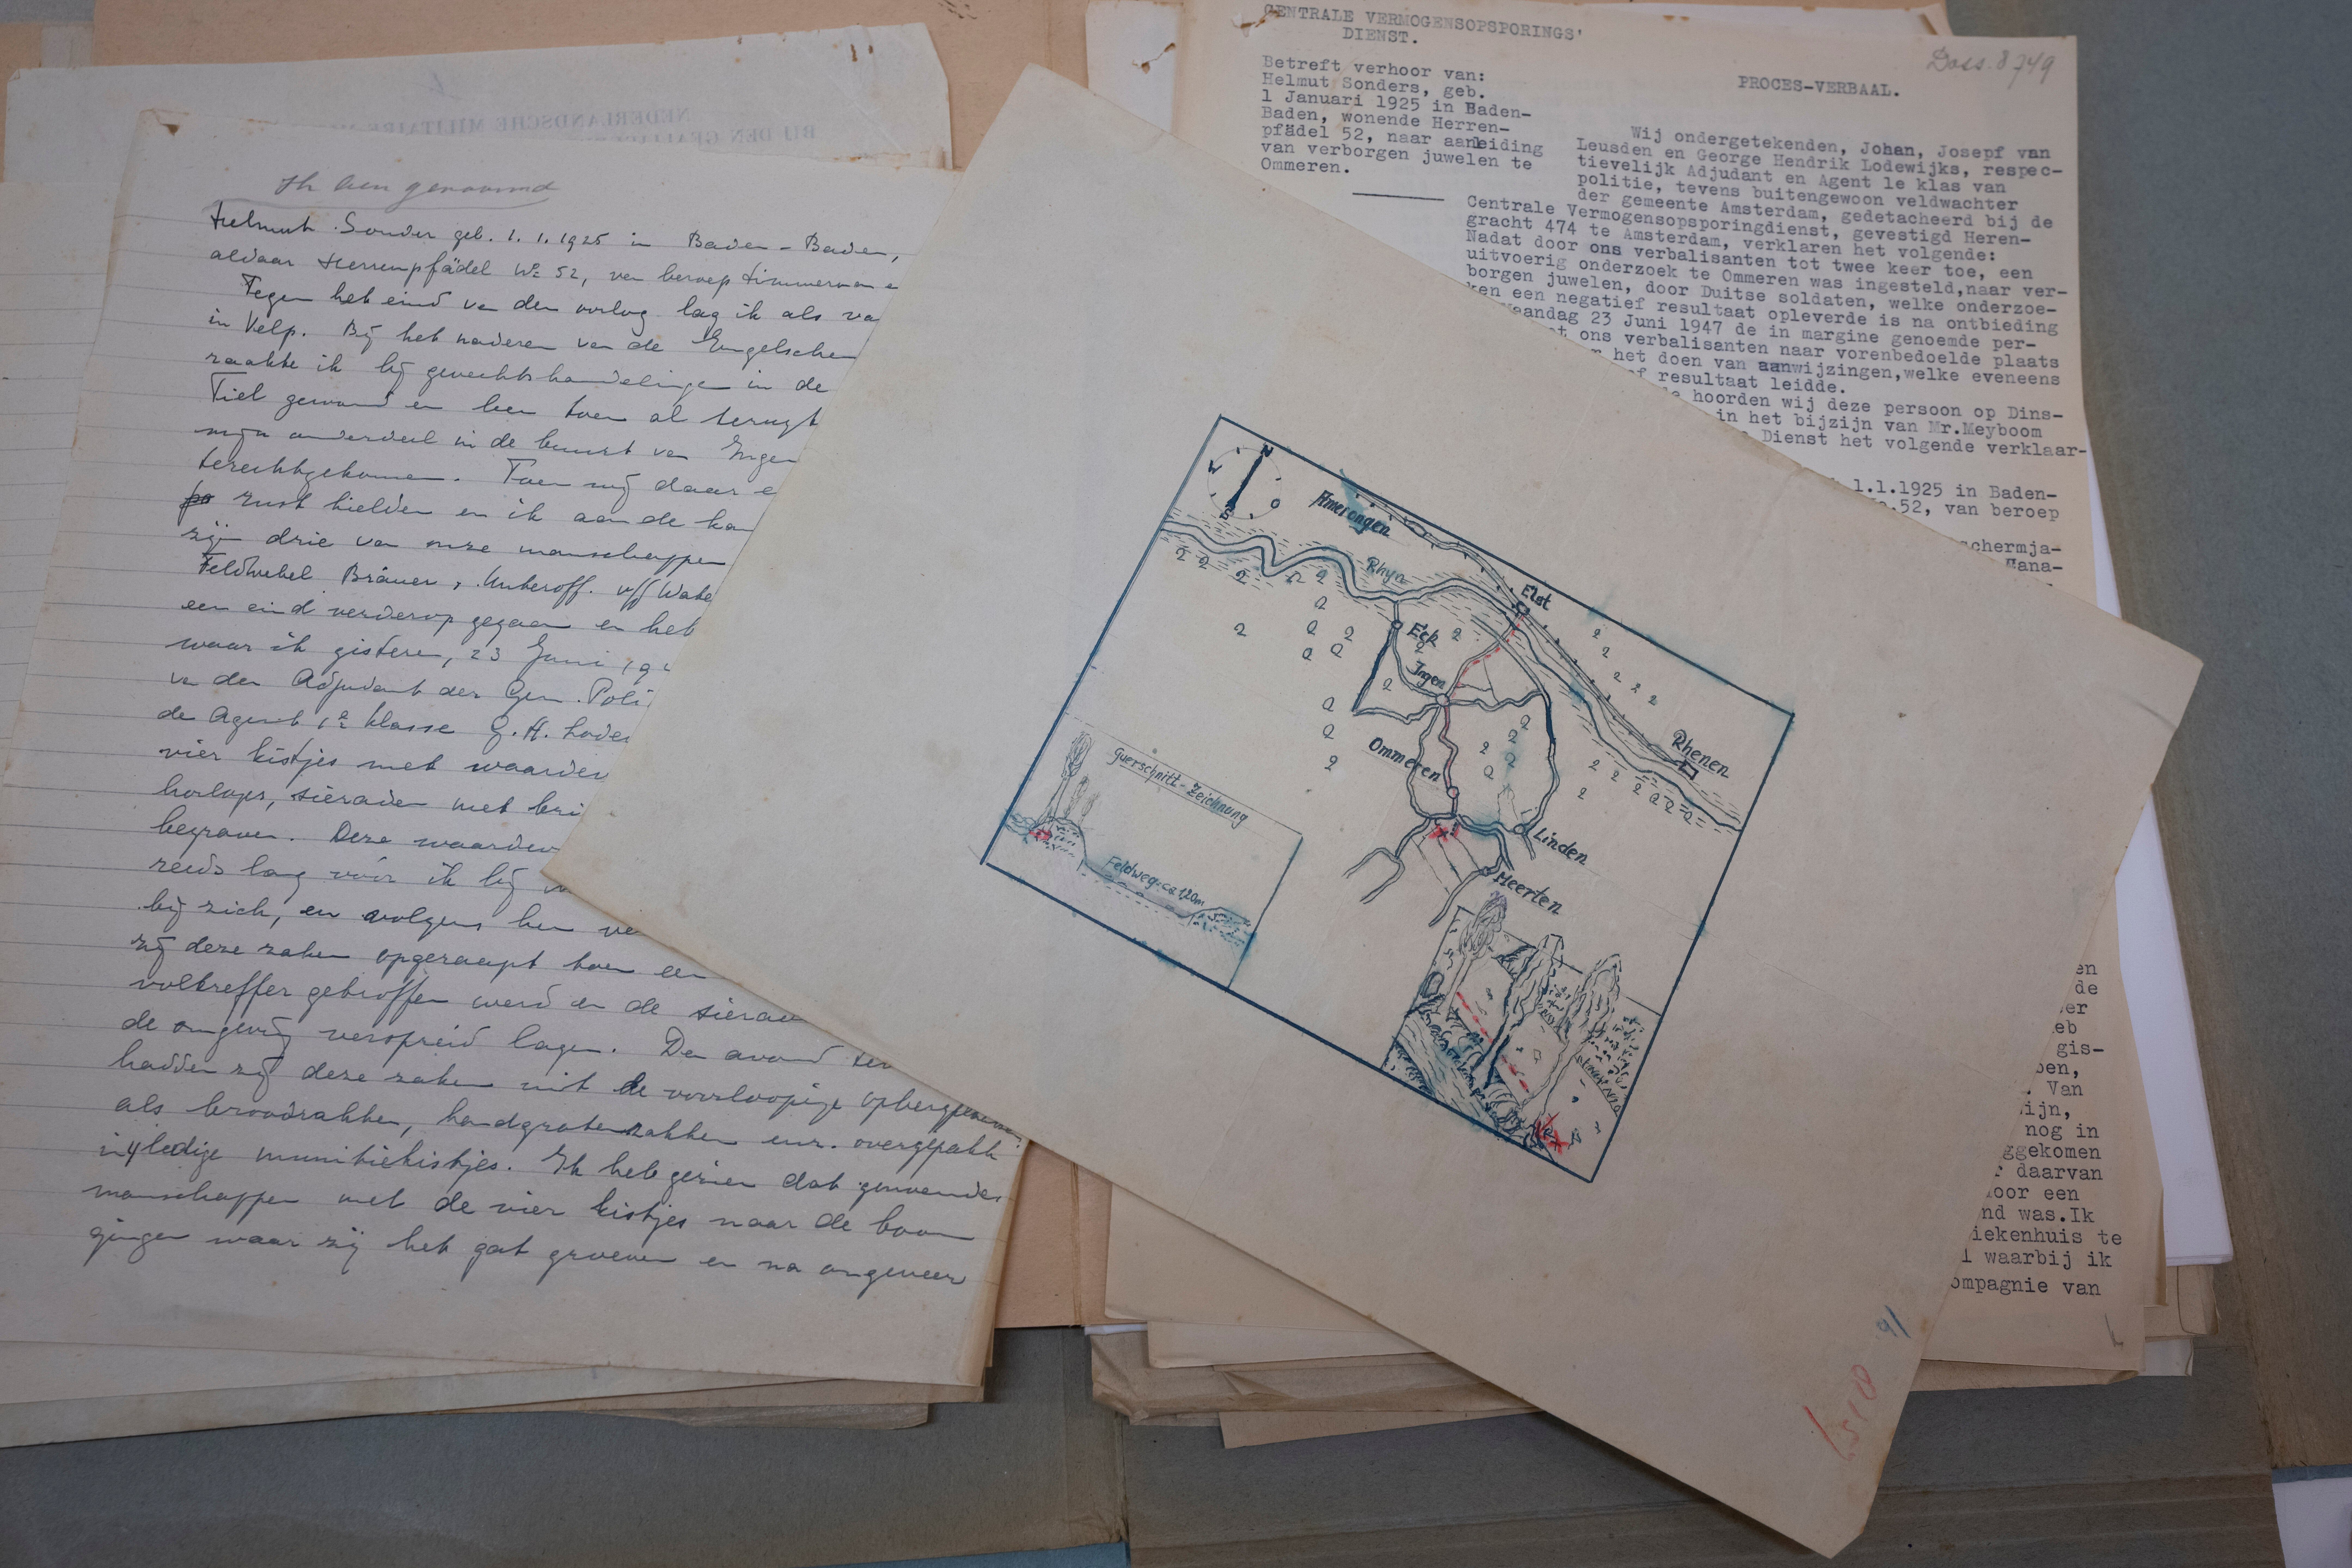 NEDERLANDSCHE MILITAIRE
BIJ DEN
Ik ben genaamd
Helmut Sonder geb. 1.1.1925 in Baden-Baden,
aldaar Herrenpfädel No 52, van beroep timmerman
Tegen het eind van den oorlog lag ik als
in Velp. Bij het naderen van de Engelschen
raakte ik bij gevechtshandelingen in de
Tiel gewond en ben toen al
mijn onderdeel in de buurt van Ingen
terechtgekomen. Toen wij daar
rust hielden en ik aan de
zijn drie van onze manschappen
Feldwebel Bräuer, Unteroff.
een eind verderop gegaan en heb
waar ik gisteren, 23 Juni
van den Adjudant der Gem. Poli
de Agent 1e klasse G. H. Lode
vier kistjes met waarden
horloges, sieraden met bri
begraven. Deze waarden
reeds lang vóór ik bij
bij zich, en volgens hen
zij deze zaken opgeraapt toen een
voltreffer getroffen werd en de siera
de omgeving verspreid lagen. Den avond
hadden zij deze zaken uit de voorloopige
als broodzakken, handgranatenzakken enz. overgepakt
in 4 ledige munitiekistjes. Ik heb gezien dat genoemde
manschappen met de vier kistjes naar de boom
gingen waar zij het gat groeven en na ongeveer
CENTRALE VERMOGENSOPSPORINGS'
DIENST.
Doss. 8749
Betreft verhoor van:
Helmut Sonders, geb.
1 Januari 1925 in Baden-
Baden, wonende Herren-
pfädel 52, naar aanleiding
van verborgen juwelen te
Ommeren.
PROCES-VERBAAL.
Wij ondergetekenden, Johan, Josepf van
Leusden en George Hendrik Lodewijks, respec-
tievelijk Adjudant en Agent 1e klas van
politie, tevens buitengewoon veldwachter
der gemeente Amsterdam, gedetacheerd bij de
Centrale Vermogensopsporingdienst, gevestigd Heren-
gracht 474 te Amsterdam, verklaren het volgende:
Nadat door ons verbalisanten tot twee keer toe, een
uitvoerig onderzoek te Ommeren was ingesteld,naar ver-
borgen juwelen, door Duitse soldaten, welke onderzoe-
ken een negatief resultaat opleverde is na ontbieding
aandag 23 Juni 1947 de in margine genoemde per-
t ons verbalisanten naar vorenbedoelde plaats
r het doen van aanwijzingen,welke eveneens
ef resultaat leidde.
hoorden wij deze persoon op Dins-
in het bijzijn van Mr.Meyboom
Dienst het volgende verklaar-
1.1.1925 in Baden-
52, van beroep
schermja-
en
de
er
eb
gis-
pen,
. Van
ijn,
nog in
ggekomen
r daarvan
oor een
nd was.Ik
iekenhuis te
l waarbij ik
ompagnie van
N
W
O
S
Amerongen
Rhyn
Elst
Eck
Ingen
Ommeren
Rhenen
Linden
Meerten
Querschnitt-Zeichnung
Feldweg-ca 120m
91